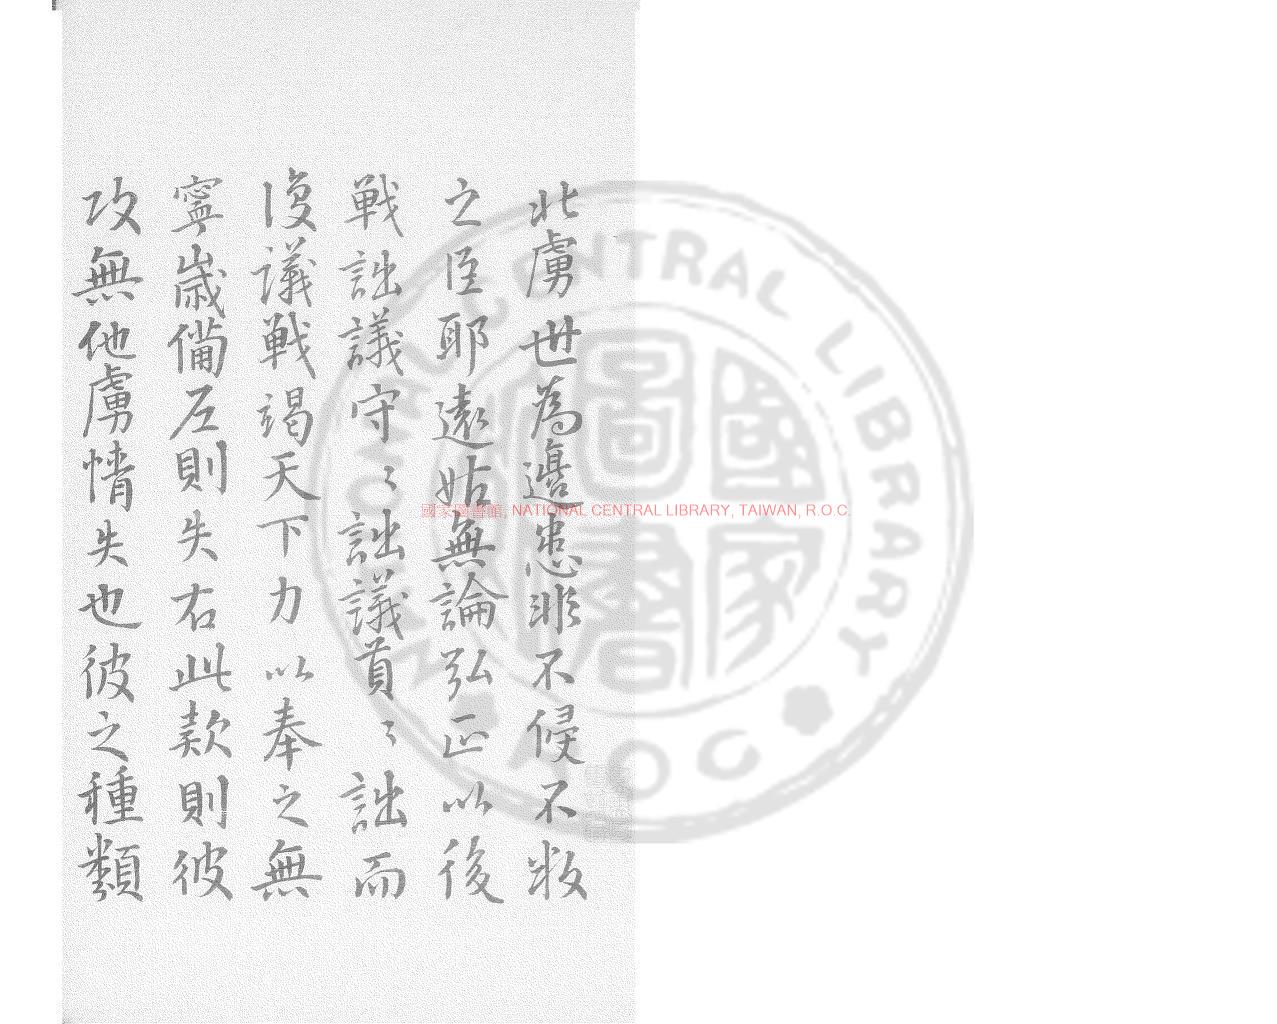 北虜世為邊患非不侵不叛
之臣耶遠姑無論弘正以後
戰詘議守〻詘議貢〻詘而
復議戰竭天下力以奉之無
寧歲備左則失右此款則彼
攻無他虜情失也彼之種類
國家圖書館, NATIONAL CENTRAL LIBRARY, TAIWAN, R.O.C.
NATIONAL CENTRAL LIBRARY
R.O.C
國家圖書